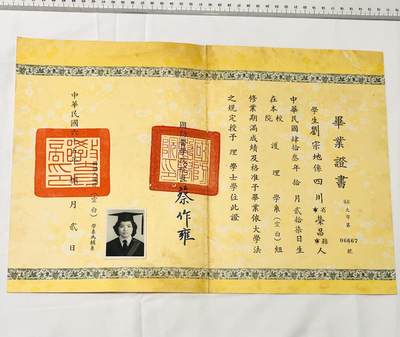 畢業證書
66大字第
06667 號
學生劉宗地係四川省榮昌縣人
中華民國肆拾叁年拾月貳拾柒日生
在本校院護理學系(空白)組
修業期滿成績及格准予畢業依大學法
之規定授予理學士學位此證
國防醫學院院長 蔡作雍
(空白)學系為輔系
中華民國六
月貳日